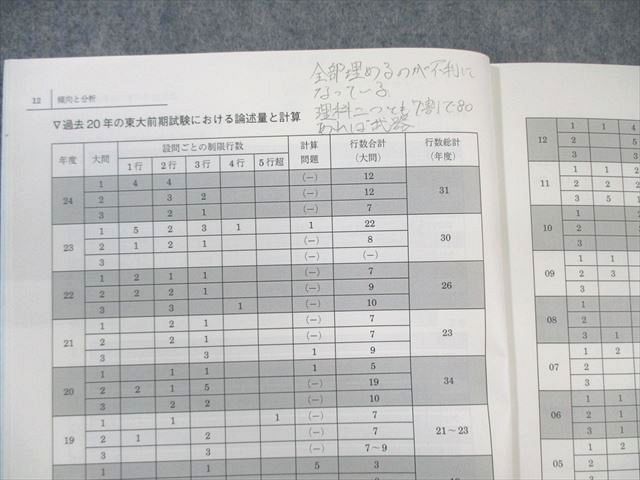 12 傾向と分析
全部埋めるのが不利に
なっている
理科二つとも7割で80
あれば武器
▽過去20年の東大前期試験における論述量と計算
年度 大問 設問ごとの制限行数 計算問題 行数合計(大問) 行数総計(年度)
1行 2行 3行 4行 5行超
24 1 4 4 (－) 12 31
2 3 2 (－) 12
3 2 1 (－) 7
23 1 5 2 3 1 1 22 30
2 1 2 1 (－) 8
3 (－) (－)
22 1 2 1 1 (－) 7 26
2 2 2 1 (－) 9
3 3 1 (－) 10
21 1 2 1 (－) 7 23
2 2 1 (－) 7
3 3 1 9
20 1 1 1 1 5 34
2 2 1 5 (－) 19
3 2 2 (－) 10
19 1 1 1 (－) 7 21～23
2 1 2 (－) 7
3 3 (－) 7～9
1 1 5 3
12 1 1 4
2 5
3 3
11 1 1 2 2
2 2 2
3 5 1
10 1 1
2
3
09 1 1 3
2 2 3
3
08 1
2
3 1
07 1 1
2
3
06 1
2
3
05 1 1 2
2 1
3